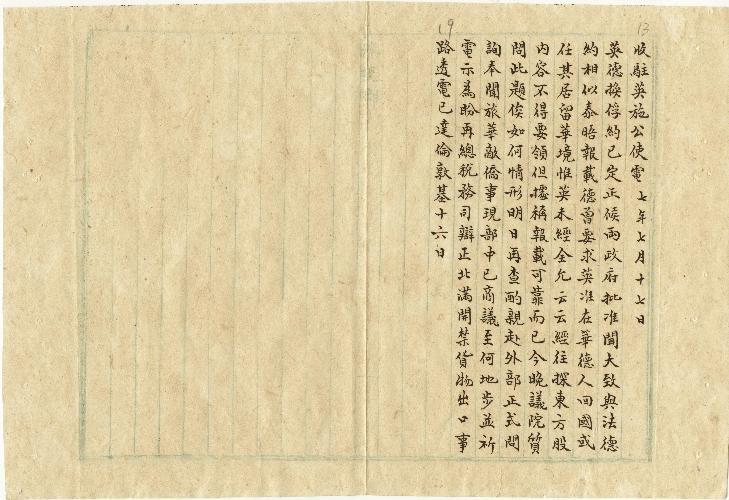 13
19
收駐英施公使電 七年七月十七日
英德換俘約已定正候兩政府批准聞大致與法德
約相似泰晤報載德曾要求英准在華德人回國或
任其居留華境惟英未經全允云云經往探東方股
內容不得要領但據稱報載可靠而已今晚議院質
問此題俟如何情形明日再查酌親赴外部正式問
詢奉聞旅華敵僑事現部中已商議至何地步並祈
電示為盼再總稅務司辯正北滿開禁貨物出口事
路透電已達倫敦基十六日